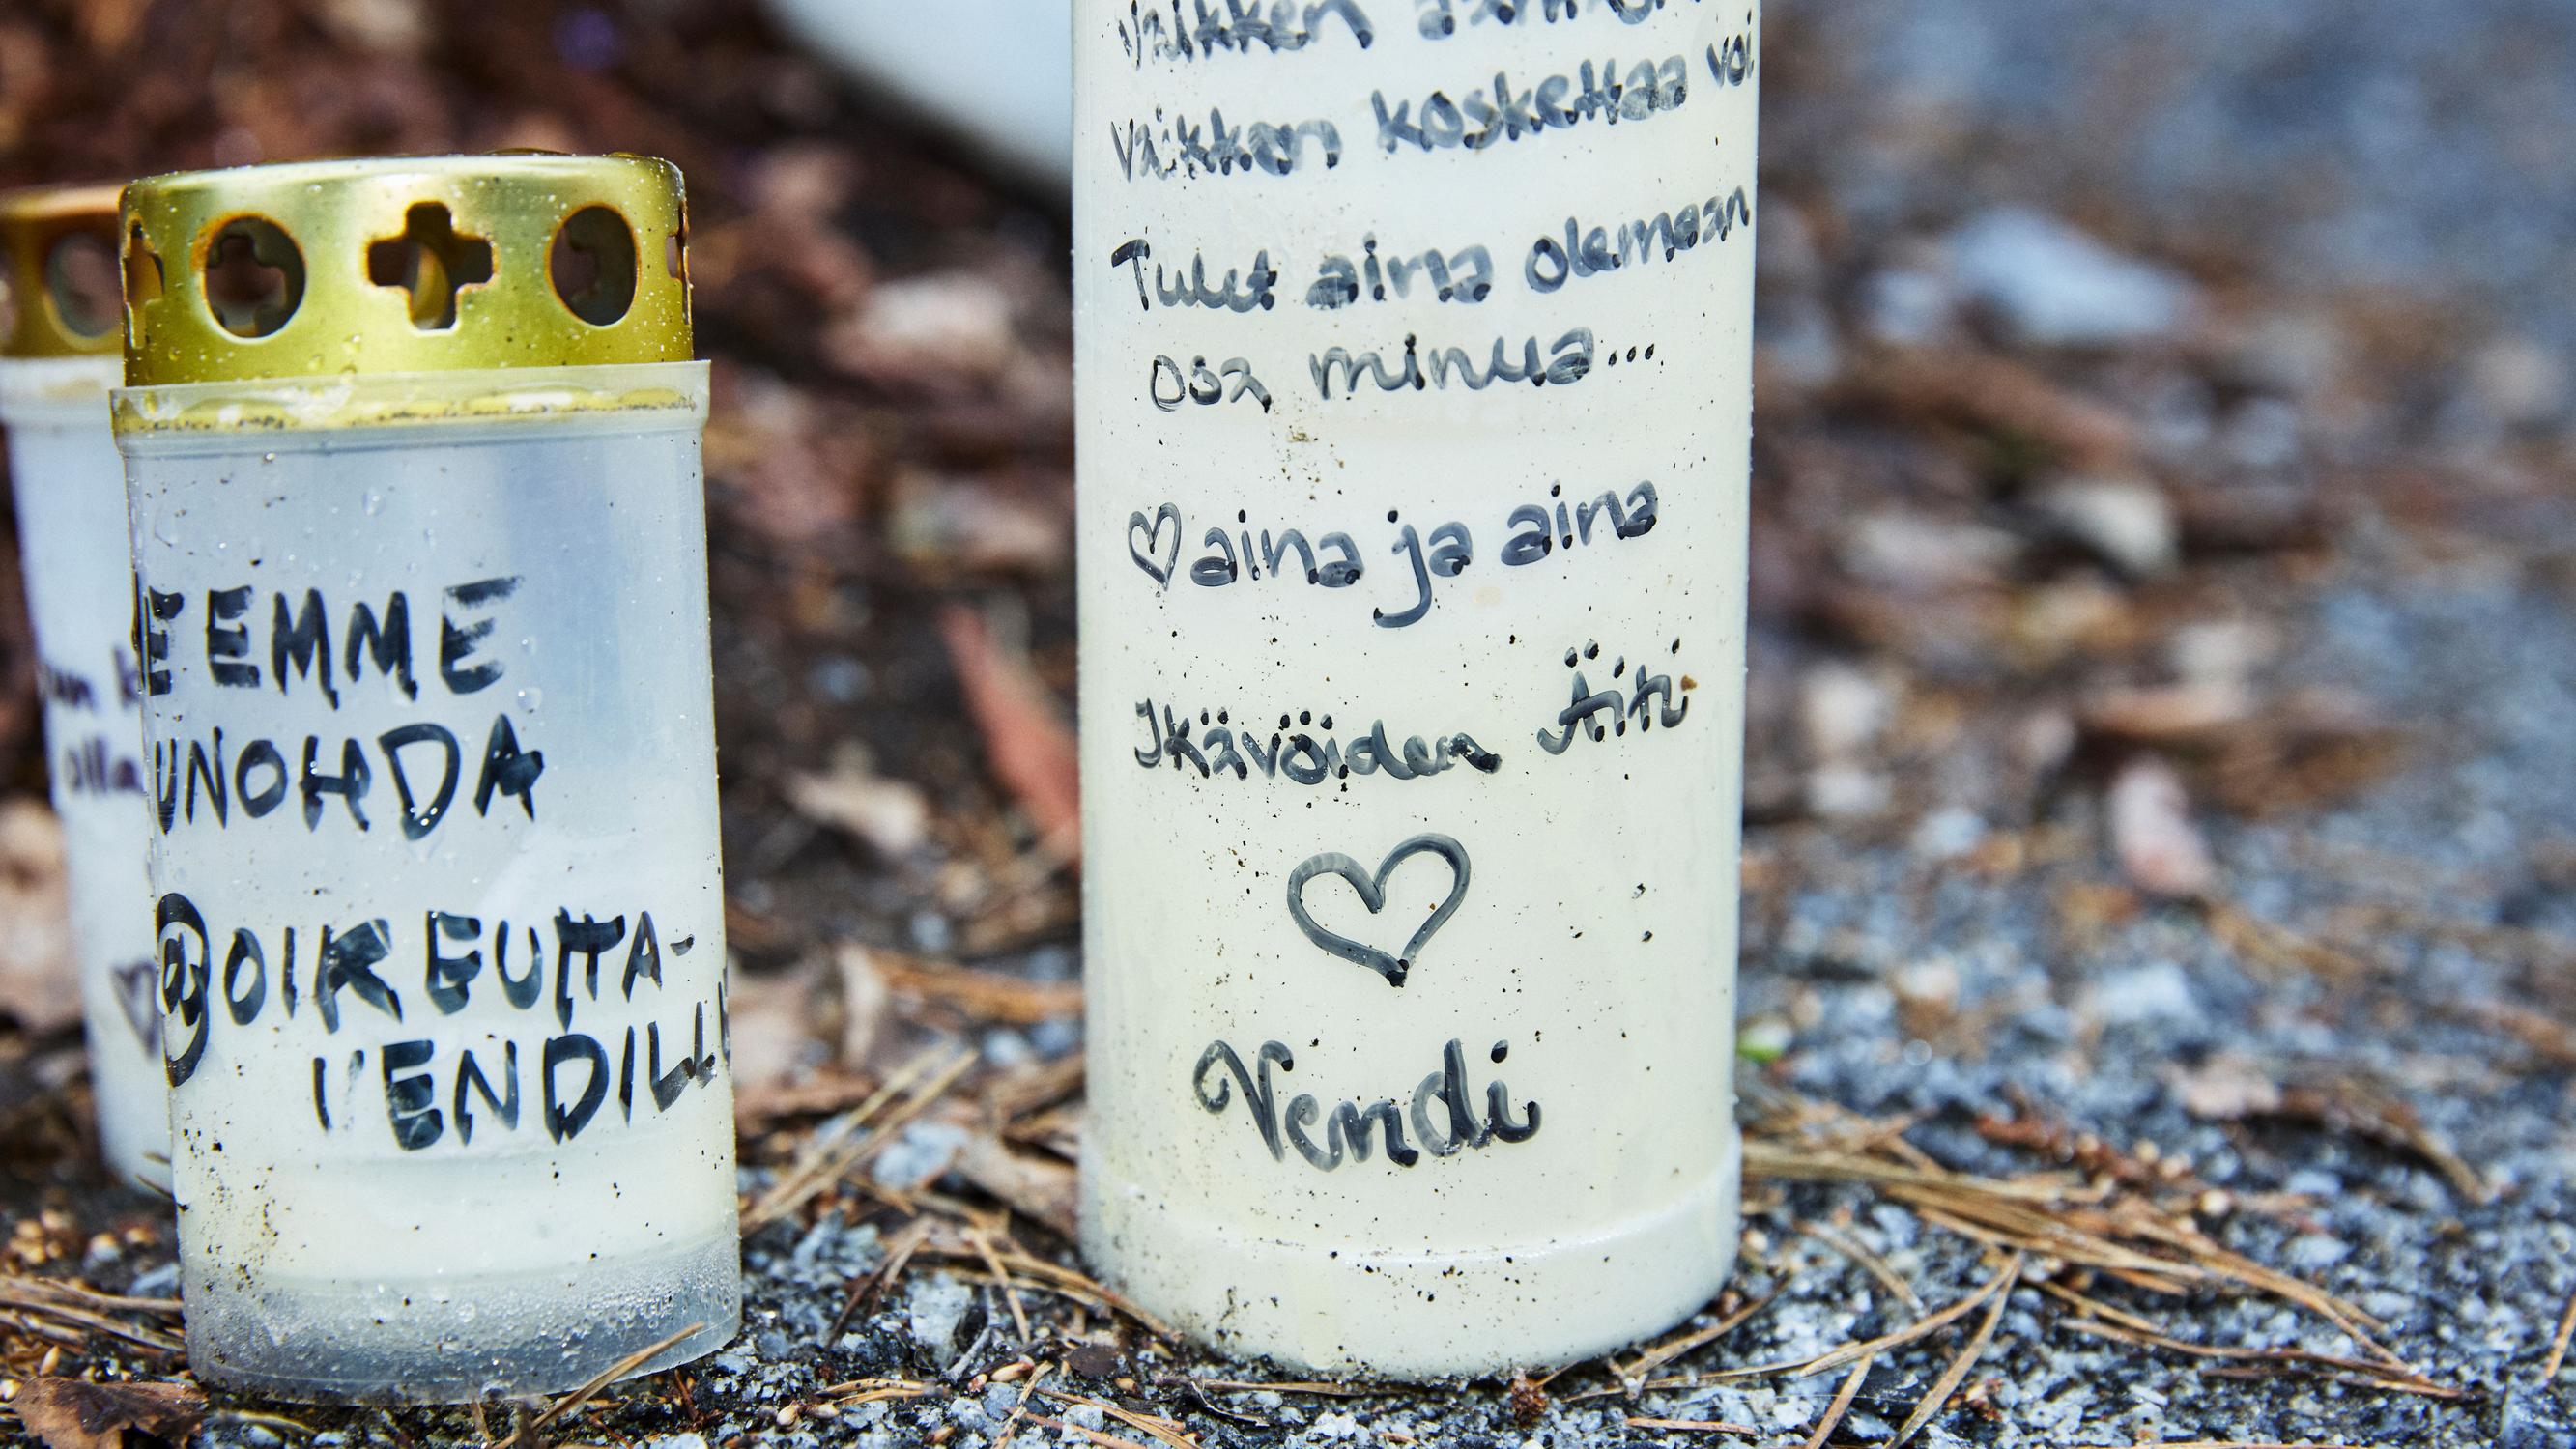 EMME
UNOHDA
@OIKEUTTA-
VENDILL
olla
Vaikken
Vaikken koskettaa voi
Tulet aina olemaan
osa minua...
♡ aina ja aina
Ikävöiden Äiti
♡
Vendi